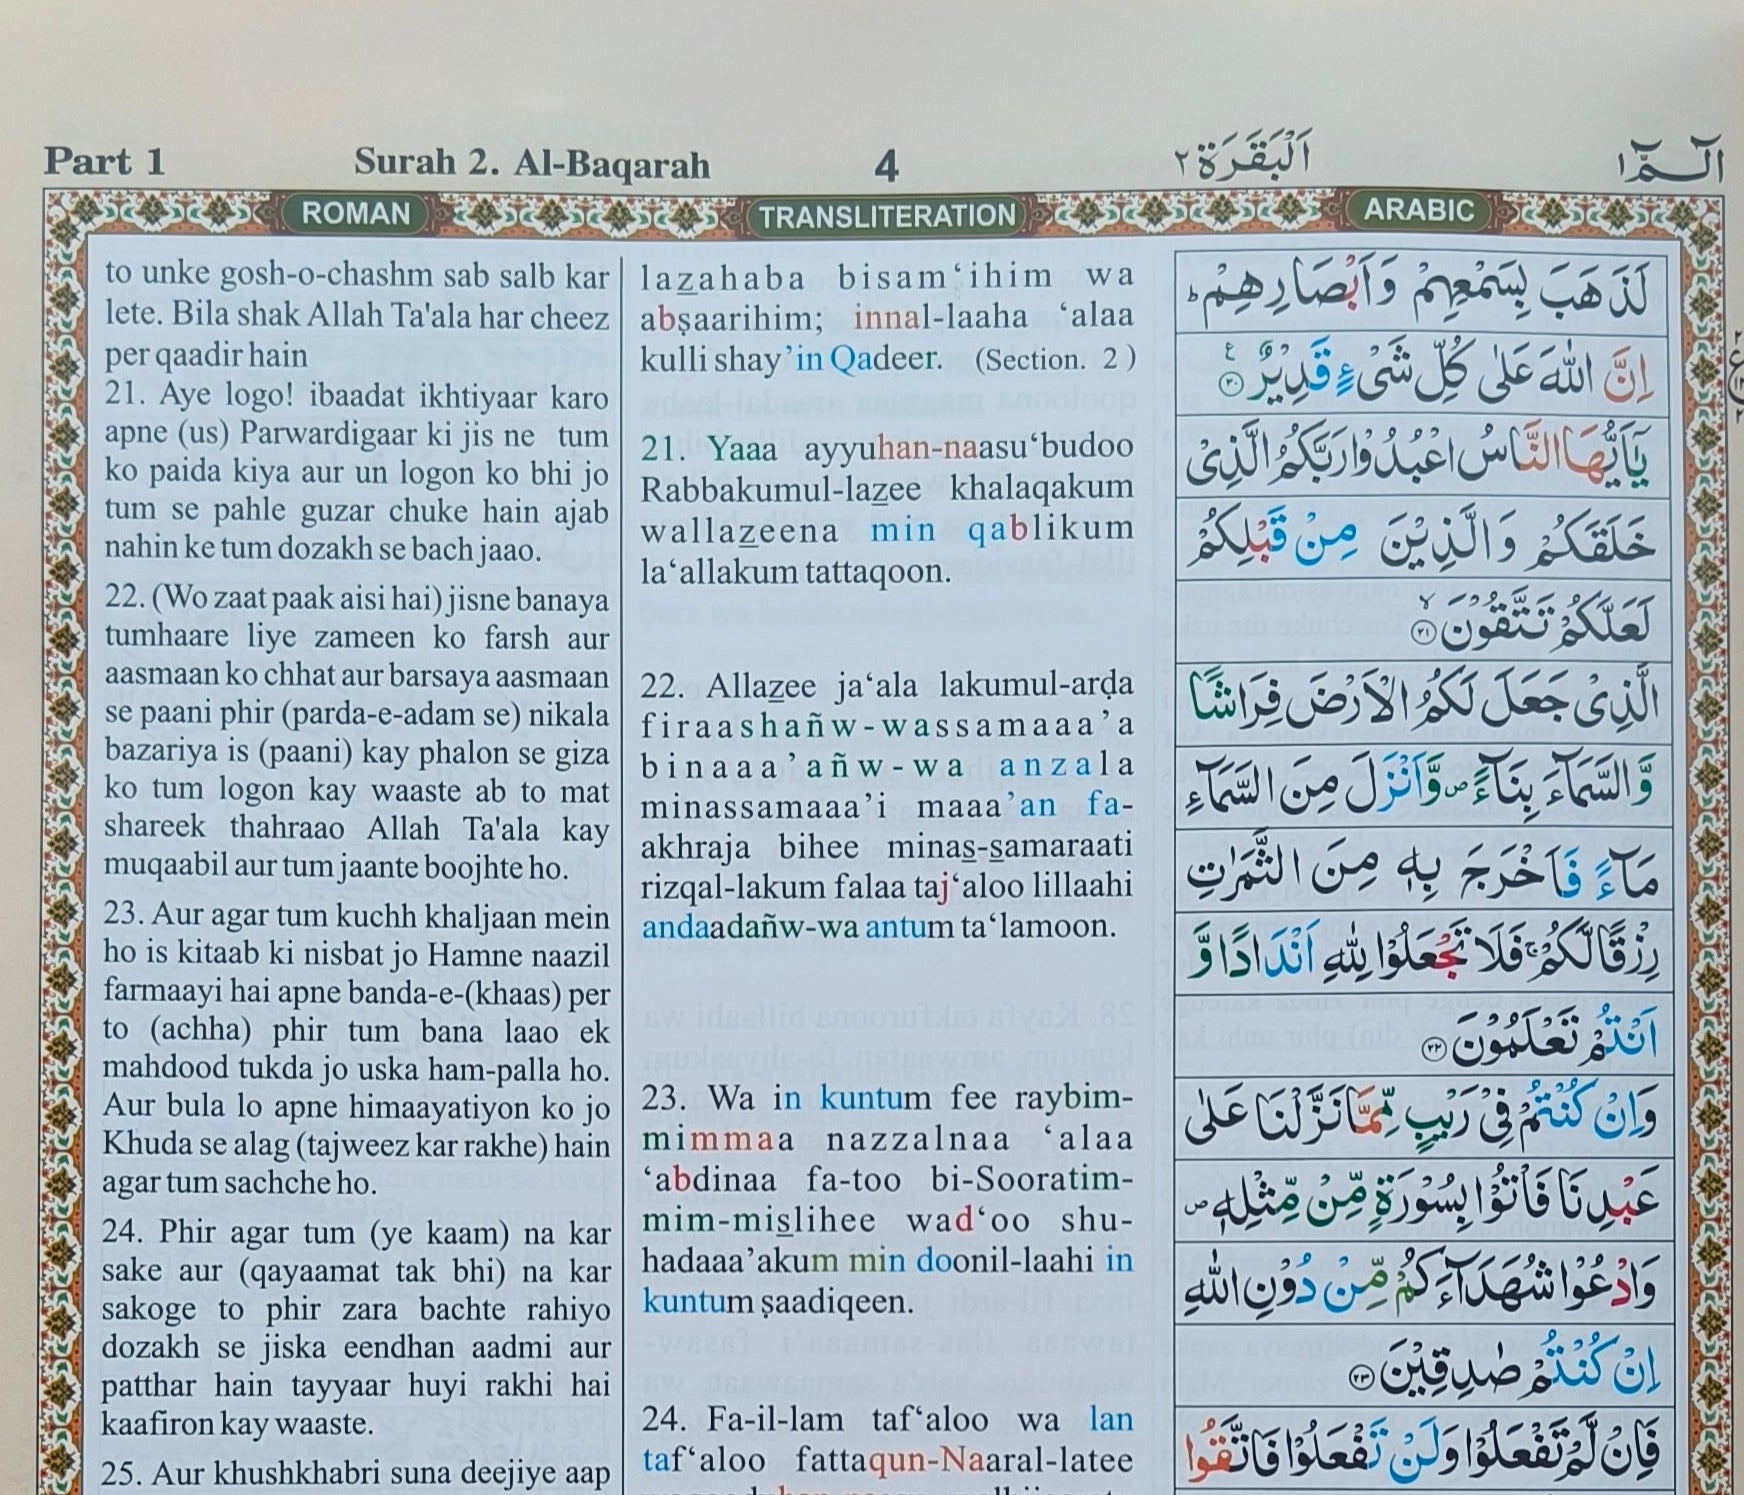 Part 1 Surah 2. Al-Baqarah 4 اَلْبَقَرَة ٢ الٓـمّٓ ١
ROMAN TRANSLITERATION ARABIC
to unke gosh-o-chashm sab salb kar
lete. Bila shak Allah Ta'ala har cheez
per qaadir hain
21. Aye logo! ibaadat ikhtiyaar karo
apne (us) Parwardigaar ki jis ne tum
ko paida kiya aur un logon ko bhi jo
tum se pahle guzar chuke hain ajab
nahin ke tum dozakh se bach jaao.
22. (Wo zaat paak aisi hai) jisne banaya
tumhaare liye zameen ko farsh aur
aasmaan ko chhat aur barsaya aasmaan
se paani phir (parda-e-adam se) nikala
bazariya is (paani) kay phalon se giza
ko tum logon kay waaste ab to mat
shareek thahraao Allah Ta'ala kay
muqaabil aur tum jaante boojhte ho.
23. Aur agar tum kuchh khaljaan mein
ho is kitaab ki nisbat jo Hamne naazil
farmaayi hai apne banda-e-(khaas) per
to (achha) phir tum bana laao ek
mahdood tukda jo uska ham-palla ho.
Aur bula lo apne himaayatiyon ko jo
Khuda se alag (tajweez kar rakhe) hain
agar tum sachche ho.
24. Phir agar tum (ye kaam) na kar
sake aur (qayaamat tak bhi) na kar
sakoge to phir zara bachte rahiyo
dozakh se jiska eendhan aadmi aur
patthar hain tayyaar huyi rakhi hai
kaafiron kay waaste.
25. Aur khushkhabri suna deejiye aap
lazahaba bisam‘ihim wa
abṣaarihim; innal-laaha ‘alaa
kulli shay’in Qadeer. (Section. 2 )
21. Yaaa ayyuhan-naasu‘budoo
Rabbakumul-lazee khalaqakum
wallazeena min qablikum
la‘allakum tattaqoon.
22. Allazee ja‘ala lakumul-arḍa
firaashañw-wassamaaa’a
binaaa’añw-wa anzala
minassamaaa’i maaa’an fa-
akhraja bihee minas-samaraati
rizqal-lakum falaa taj‘aloo lillaahi
andaadañw-wa antum ta‘lamoon.
23. Wa in kuntum fee raybim-
mimmaa nazzalnaa ‘alaa
‘abdinaa fa-too bi-Sooratim-
mim-mislihee wad‘oo shu-
hadaaa’akum min doonil-laahi in
kuntum ṣaadiqeen.
24. Fa-il-lam taf‘aloo wa lan
taf‘aloo fattaqun-Naaral-latee
لَذَهَبَ بِسَمْعِهِمْ وَاَبْصَارِهِمْ ؕ
اِنَّ اللّٰهَ عَلٰى كُلِّ شَىْءٍ قَدِيْرٌ ۟ ٢٠
يٰٓاَيُّهَا النَّاسُ اعْبُدُوْا رَبَّكُمُ الَّذِىْ
خَلَقَكُمْ وَالَّذِيْنَ مِنْ قَبْلِكُمْ
لَعَلَّكُمْ تَتَّقُوْنَ ۙ ٢١
الَّذِىْ جَعَلَ لَكُمُ الْاَرْضَ فِرَاشًا
وَّالسَّمَآءَ بِنَآءً ۪ وَّاَنْزَلَ مِنَ السَّمَآءِ
مَآءً فَاَخْرَجَ بِهٖ مِنَ الثَّمَرٰتِ
رِزْقًا لَّكُمْ ۚ فَلَا تَجْعَلُوْا لِلّٰهِ اَنْدَادًا وَّ
اَنْتُمْ تَعْلَمُوْنَ ٢٢
وَاِنْ كُنْتُمْ فِىْ رَيْبٍ مِّمَّا نَزَّلْنَا عَلٰى
عَبْدِنَا فَاْتُوْا بِسُوْرَةٍ مِّنْ مِّثْلِهٖ ۪
وَادْعُوْا شُهَدَآءَكُمْ مِّنْ دُوْنِ اللّٰهِ
اِنْ كُنْتُمْ صٰدِقِيْنَ ٢٣
فَاِنْ لَّمْ تَفْعَلُوْا وَلَنْ تَفْعَلُوْا فَاتَّقُوا